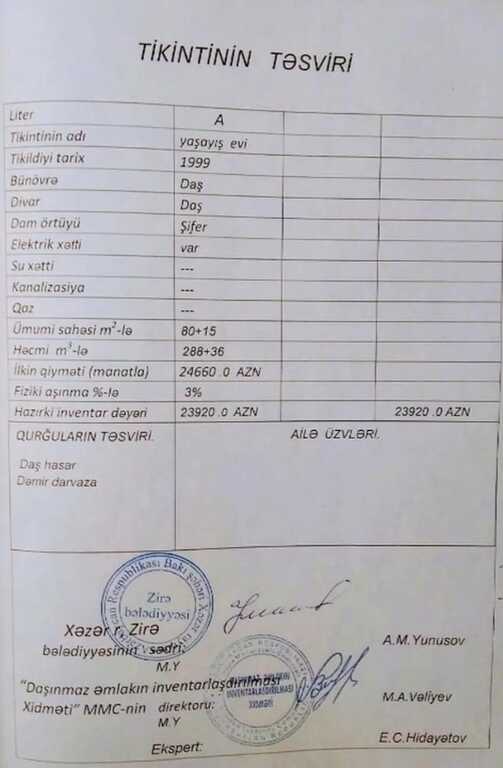 TİKİNTİNİN TƏSVİRİ
Liter A
Tikintinin adı yaşayış evi
Tikildiyi tarix 1999
Bünövrə Daş
Divar Daş
Dam örtüyü Şifer
Elektrik xətti var
Su xətti ---
Kanalizasiya ---
Qaz ---
Ümumi sahəsi m²-lə 80+15
Həcmi m³-lə 288+36
İlkin qiyməti (manatla) 24660 .0 AZN
Fiziki aşınma %-lə 3%
Hazırki inventar dəyəri 23920 .0 AZN 23920 .0 AZN
QURĞULARIN TƏSVİRİ. AİLƏ ÜZVLƏRİ.
Daş hasar
Dəmir darvaza
Respublikası Bakı şəhəri Xəzər
Zirə
bələdiyyəsi
Xəzər r. Zirə
bələdiyyəsinin sədri: A.M.Yunusov
M.Y
"Daşınmaz əmlakın inventarlaşdırılması
İNVENTARLAŞDIRILMASI
XİDMƏTİ
Xidməti" MMC-nin direktoru: M.A.Vəliyev
M.Y
Ekspert: E.C.Hidayətov